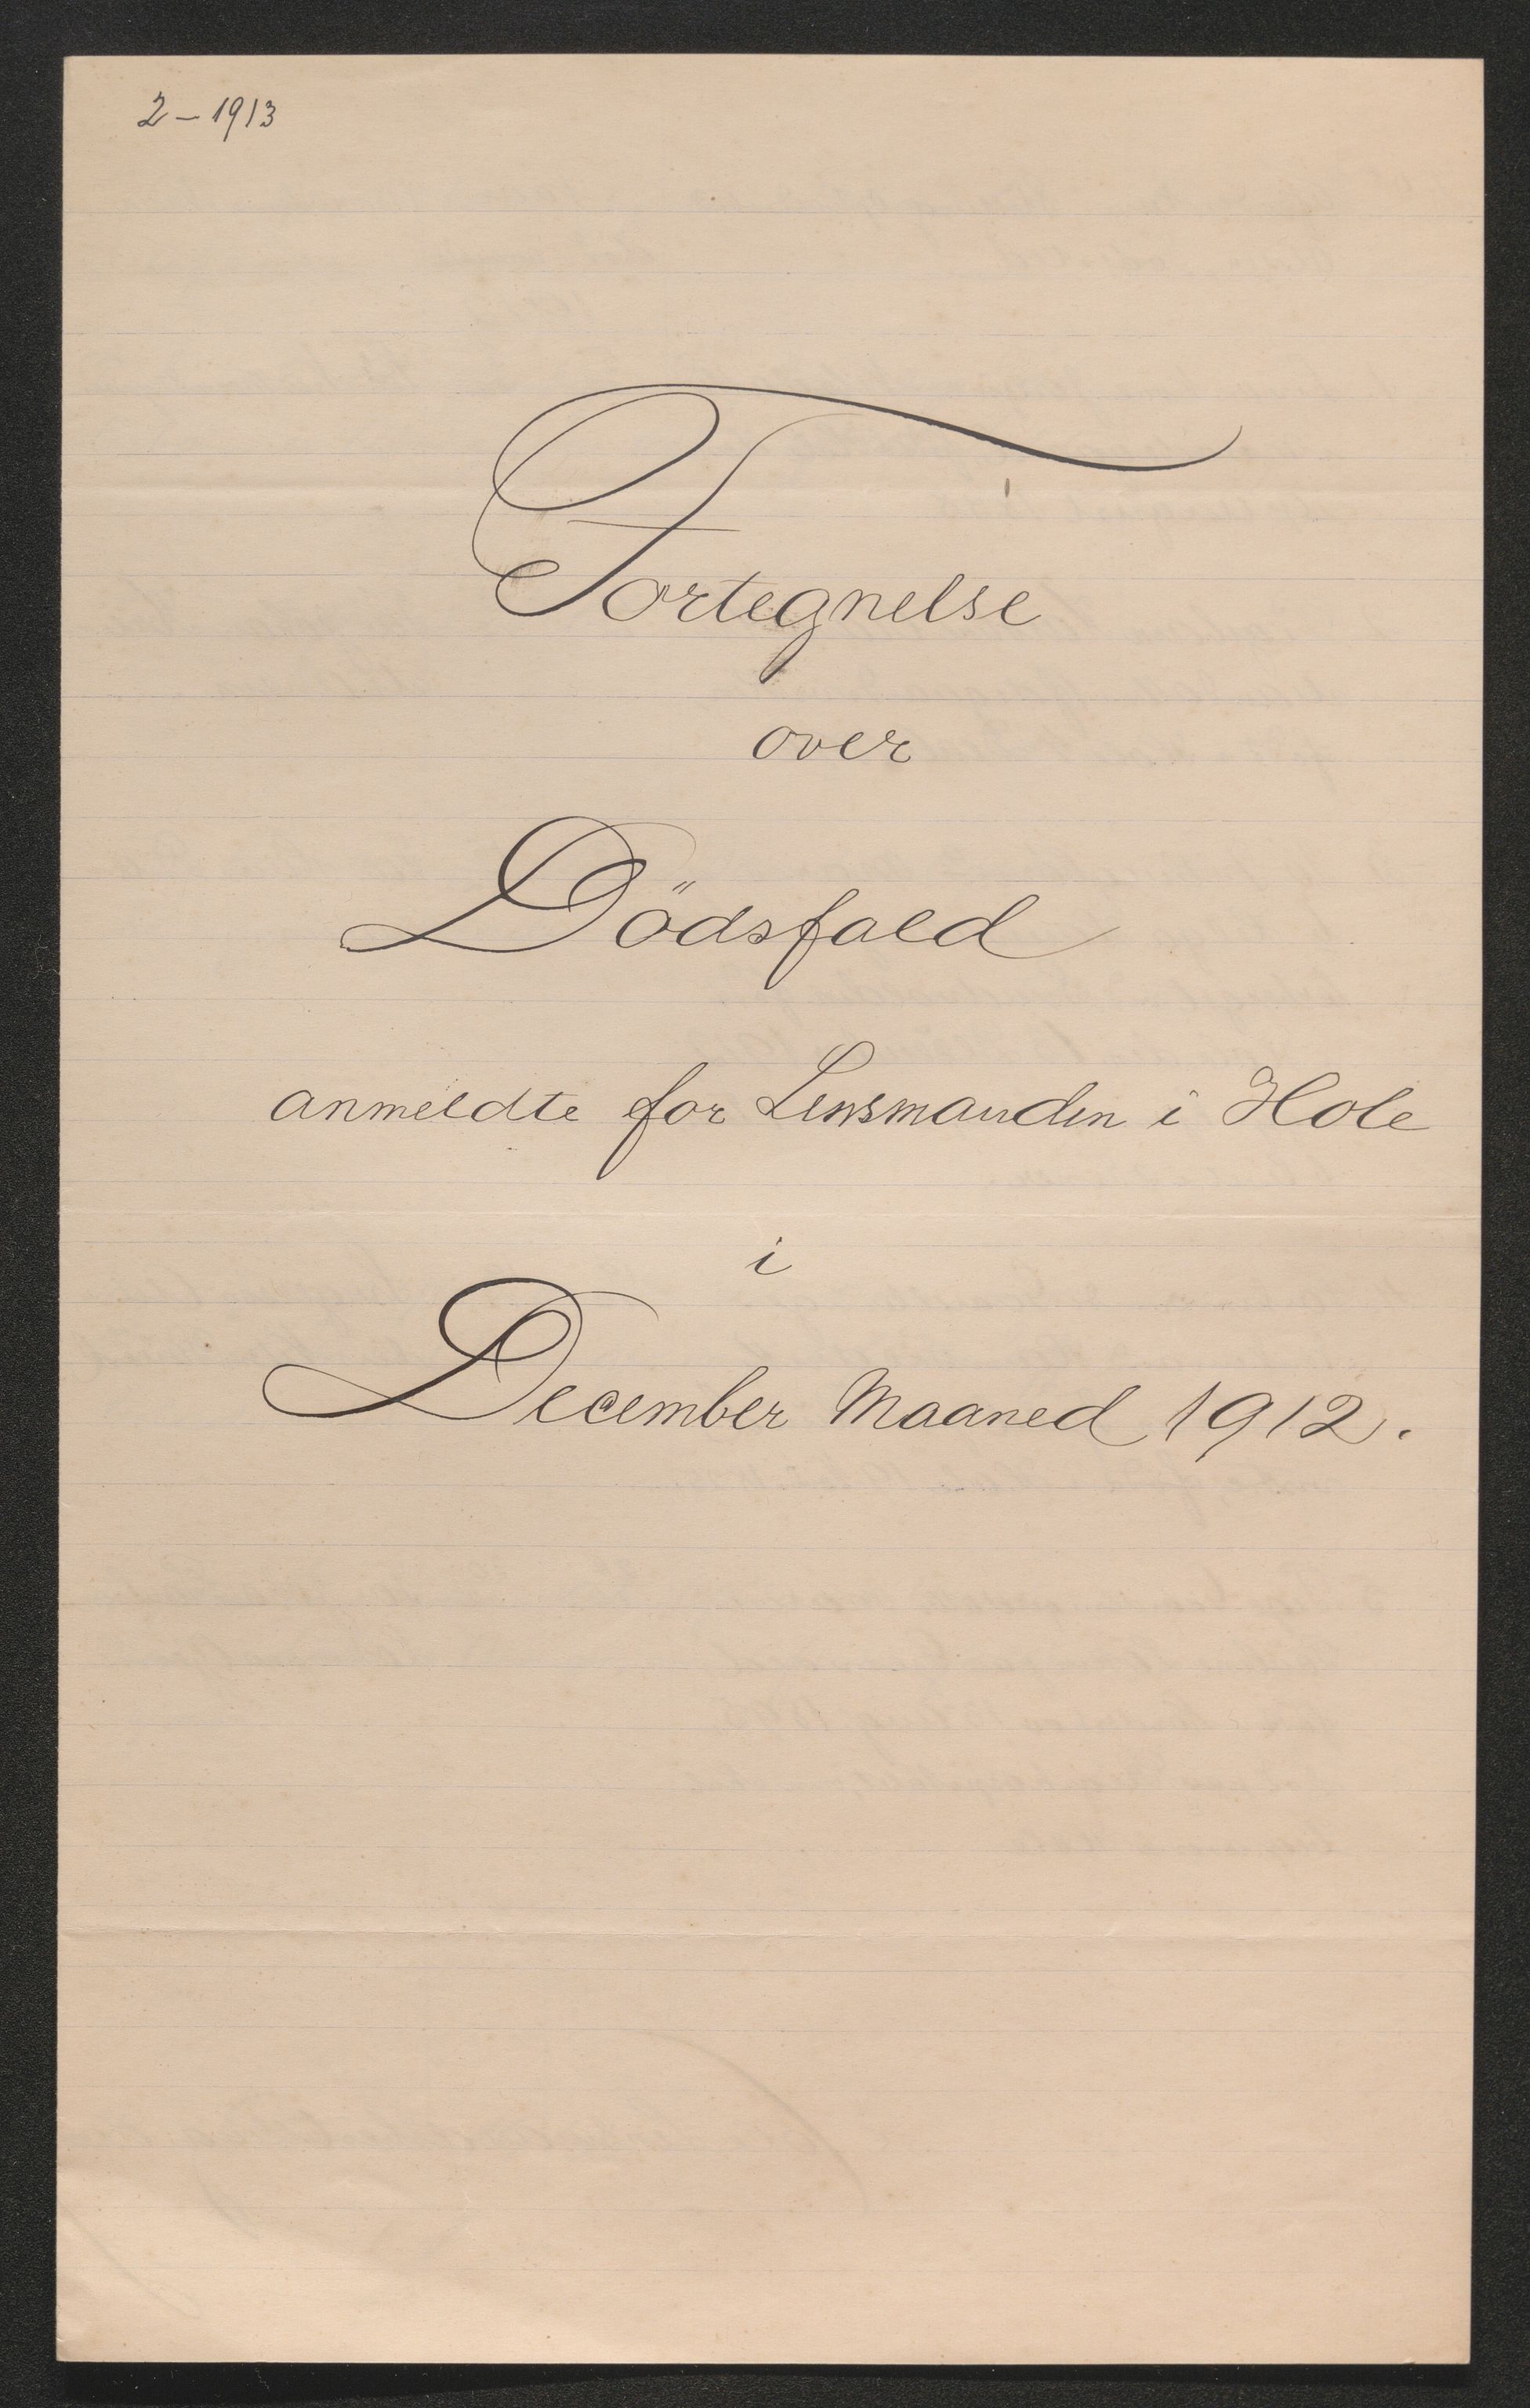 2 – 1913
Fortegnelse
over
Dödsfald
anmeldte for Lensmanden i Hole
i
December Maaned 1912.